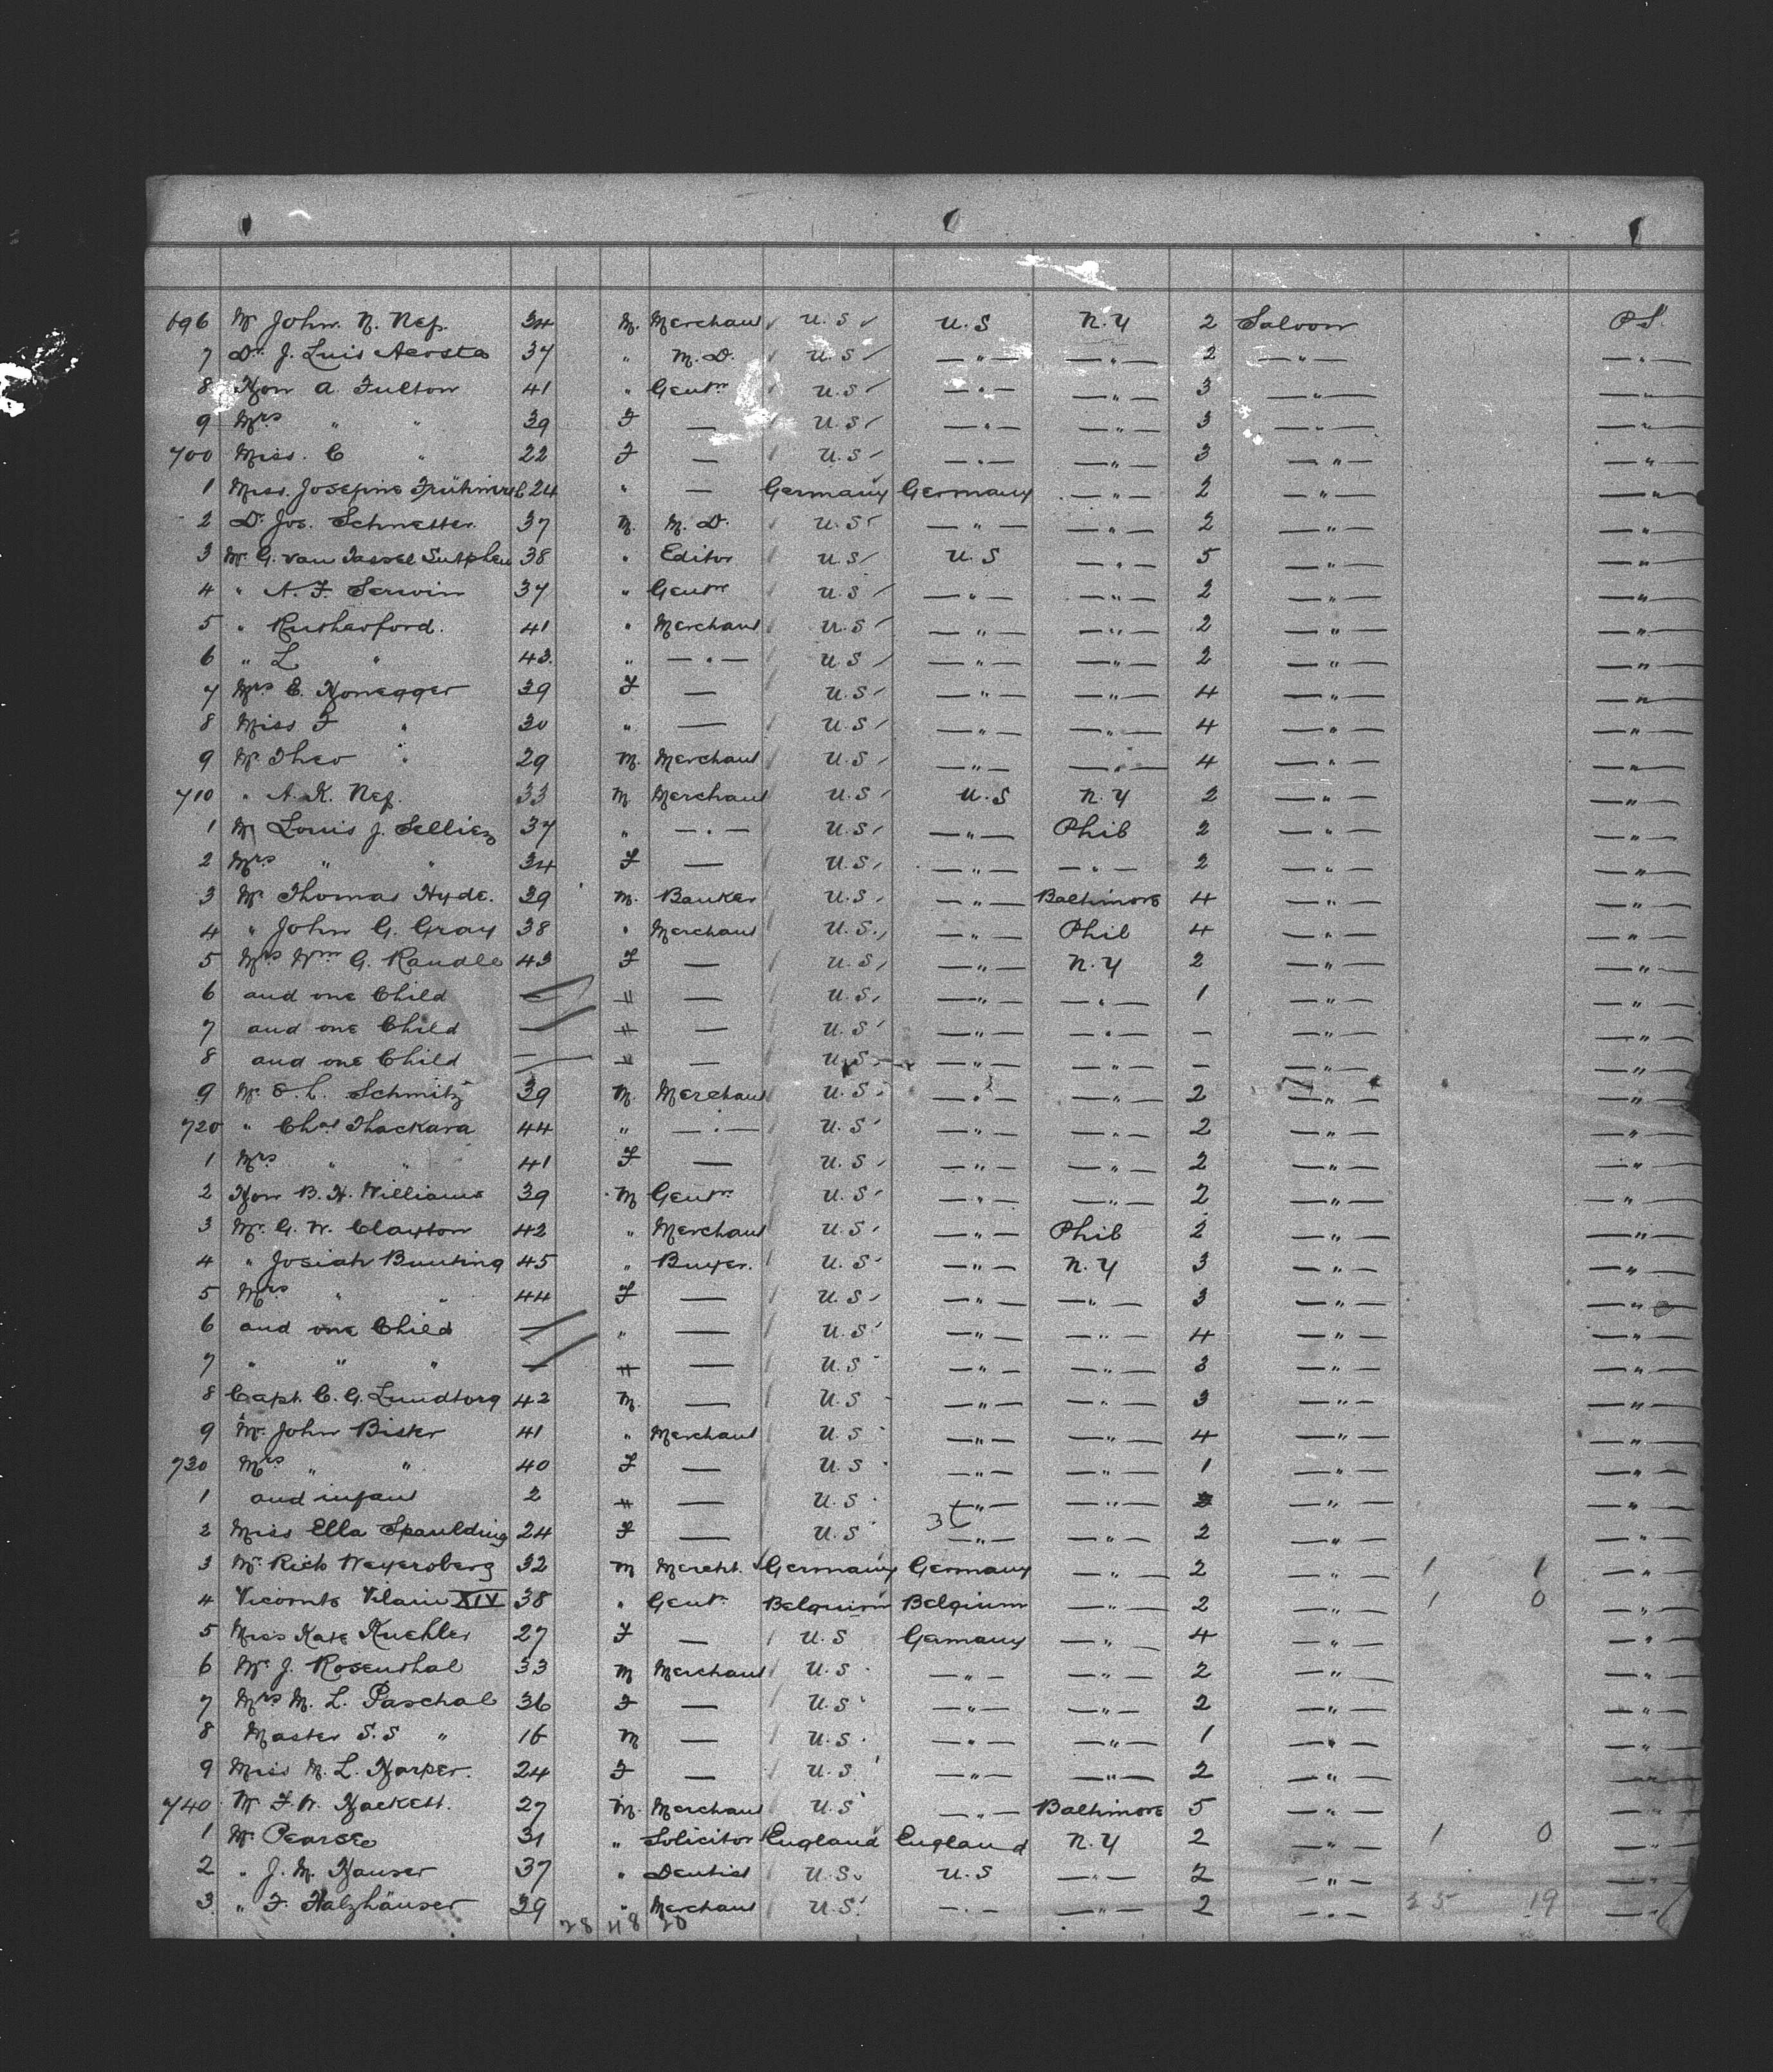 696 Mr John. N. Nef. 34 M. Merchant U.S U.S N.Y 2 Saloon P.S.
7 Dr J. Luis Acosta 37 " M.D. U.S —"— —"— 2 —"— —"—
8 Hon A. Fulton 41 " Gentm U.S —"— —"— 3 —"— —"—
9 Mrs " " 39 F — U.S —"— —"— 3 —"— —"—
700 Miss. C " 22 F — U.S —"— —"— 3 —"— —"—
1 Miss. Josefine 24 " — Germany Germany —"— 2 —"— —"—
2 Dr Jos. Schnetter. 37 M. M.D. U.S —"— —"— 2 —"— —"—
3 Mr G. van Tassel Sutphen 38 " Editor U.S U.S —"— 5 —"— —"—
4 " A. F. Serwin 37 " Gentm U.S —"— —"— 2 —"— —"—
5 " Rutherford. 41 " Merchant U.S —"— —"— 2 —"— —"—
6 " L " 43. " —"— U.S —"— —"— 2 —"— —"—
7 Mrs C. Honegger 39 F — U.S —"— —"— 4 —"— —"—
8 Miss F " 30 " — U.S —"— —"— 4 —"— —"—
9 Mr Theo " 29 M. Merchant U.S —"— —"— 4 —"— —"—
710 " A. K. Nef. 33 M Merchant U.S U.S N.Y 2 —"— —"—
1 Mr Louis J. Selliez 37 " —"— U.S —"— Phil 2 —"— —"—
2 Mrs " " 34 F — U.S —"— —"— 2 —"— —"—
3 Mr Thomas Hyde. 39 M. Banker U.S —"— Baltimore 4 —"— —"—
4 " John G. Gray 38 " Merchant U.S. —"— Phil 4 —"— —"—
5 Mrs Wm G. Randle 43 F — U.S —"— N.Y 2 —"— —"—
6 and one Child — " — U.S —"— —"— 1 —"— —"—
7 and one Child — " — U.S —"— —"— — —"— —"—
8 and one Child — " — U.S —"— —"— — —"— —"—
9 Mr E. L. Schmitz 39 M. Merchant U.S —"— —"— 2 —"— —"—
720 " Chas Thackara 44 " —"— U.S —"— —"— 2 —"— —"—
1 Mrs " " 41 F — U.S —"— —"— 2 —"— —"—
2 Hon B. H. Williams 39 M Gentm U.S —"— —"— 2 —"— —"—
3 Mr. G. W. Clayton 42 " Merchant U.S —"— Phil 2 —"— —"—
4 " Josiah Bunting 45 " Buyer. U.S —"— N.Y 3 —"— —"—
5 Mrs " " 44 F — U.S —"— —"— 3 —"— —"—
6 and one Child — " — U.S —"— —"— 4 —"— —"—
7 " " " — " — U.S —"— —"— 3 —"— —"—
8 Capt. C. G. Lundborg 42 M. — U.S —"— —"— 3 —"— —"—
9 Mr. John Bisker 41 " Merchant U.S —"— —"— 4 —"— —"—
730 Mrs " " 40 F — U.S —"— —"— 1 —"— —"—
1 and infant 2 " — U.S —"— —"— —"— —"—
2 Miss Ella Spaulding 24 F — U.S —"— —"— 2 —"— —"—
3 Mr Rich Weyersberg 32 M Mercht. Germany Germany —"— 2 —"— 1 1 —"—
4 Vicomte Vilain XIV 38 " Gentm Belgium Belgium —"— 2 —"— 1 0 —"—
5 Miss Kate Kuehler 27 F — U.S Germany —"— 4 —"— —"—
6 Mr J. Rosenthal 33 M Merchant U.S —"— —"— 2 —"— —"—
7 Mrs M. L. Paschal 36 F — U.S —"— —"— 2 —"— —"—
8 Master S.S " 16 M — U.S —"— —"— 1 —"— —"—
9 Miss M. L. Harper. 24 F — U.S —"— —"— 2 —"— —"—
740 Mr F. W. Hackett. 27 M. Merchant U.S —"— Baltimore 5 —"— —"—
1 Mr Pearse 31 " Solicitor England England N.Y 2 —"— 1 0 —"—
2 " J. M. Hauser 37 " Dentist U.S. U.S —"— 2 —"— —"—
3 " F. Halzhäuser 39 " Merchant U.S —"— —"— 2 —"— 35 19 —"—
28 48 20